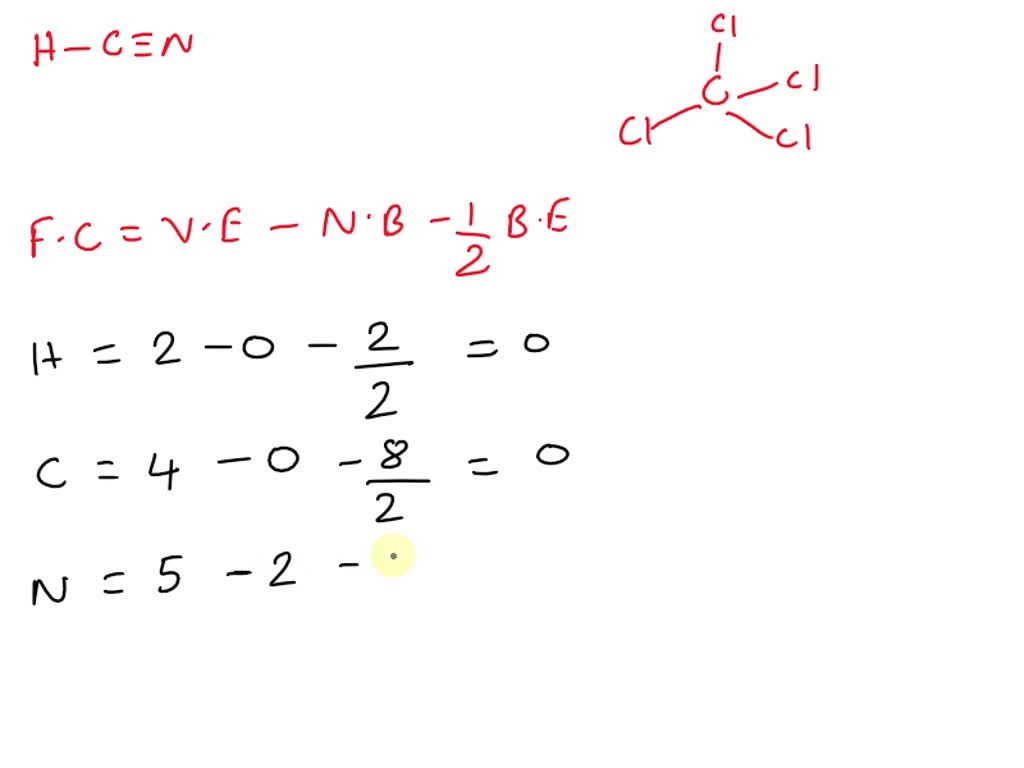 H-C≡N
Cl
C
Cl
Cl
Cl
F.C = V.E - N.B - 1/2 B.E
H = 2 - 0 - 2/2 = 0
C = 4 - 0 - 8/2 = 0
N = 5 - 2 -